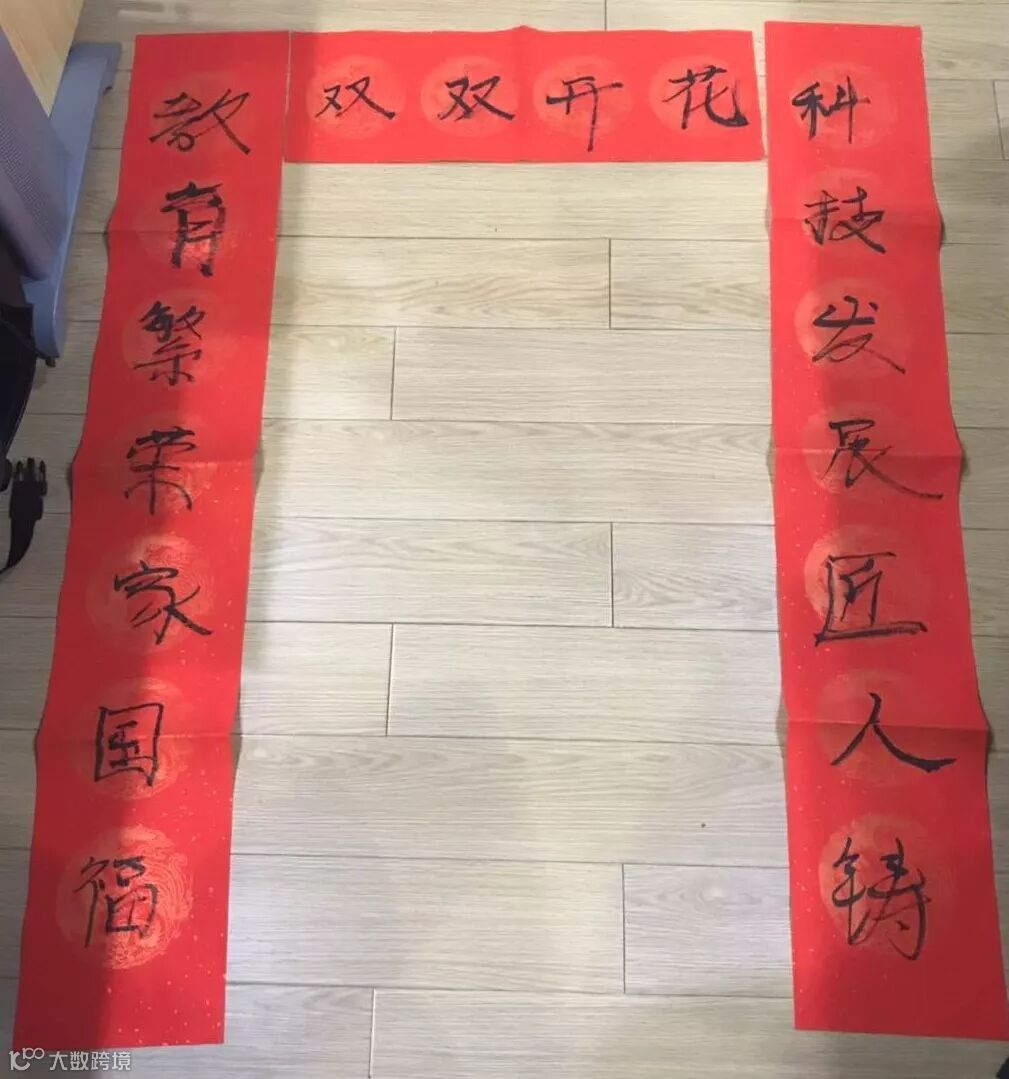 双双开花
科技发展匠人铸
教育繁荣家国福
大数跨境